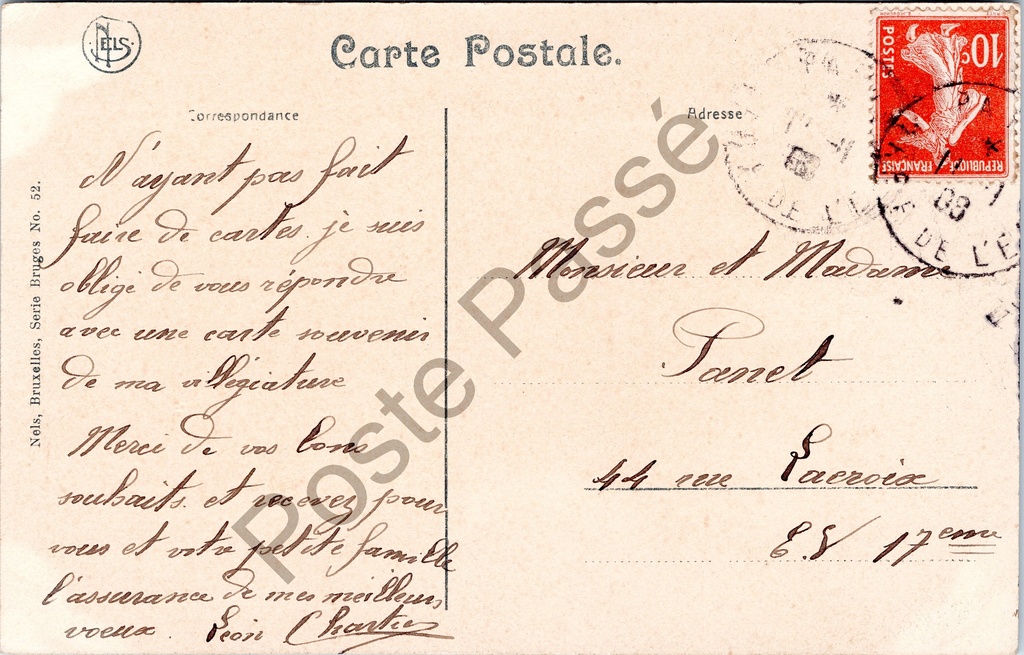 NELS
Carte Postale.
10c
POSTES
REPUBLIQUE FRANÇAISE
DE L'E
08
DE L'E
Correspondance
Adresse
Nels, Bruxelles, Serie Bruges No. 52.
N'ayant pas fait
faire de cartes je suis
obligé de vous répondre
avec une carte souvenir
de ma villégiature
Merci de vos bons
souhaits et recevez pour
vous et votre petite famille
l'assurance de mes meilleurs
voeux. Léon Chartier
Monsieur et Madame
Panet
44 rue Lacroix
E.V 17eme
Poste Passé